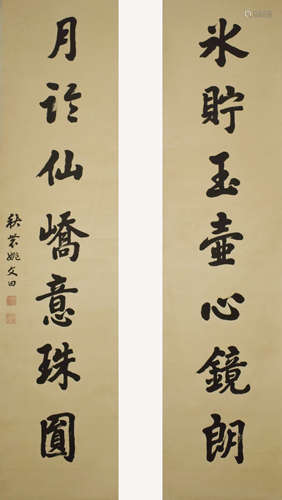 氷貯玉壷心鏡朗
月詅仙嶠意珠圓
秋農姚文田